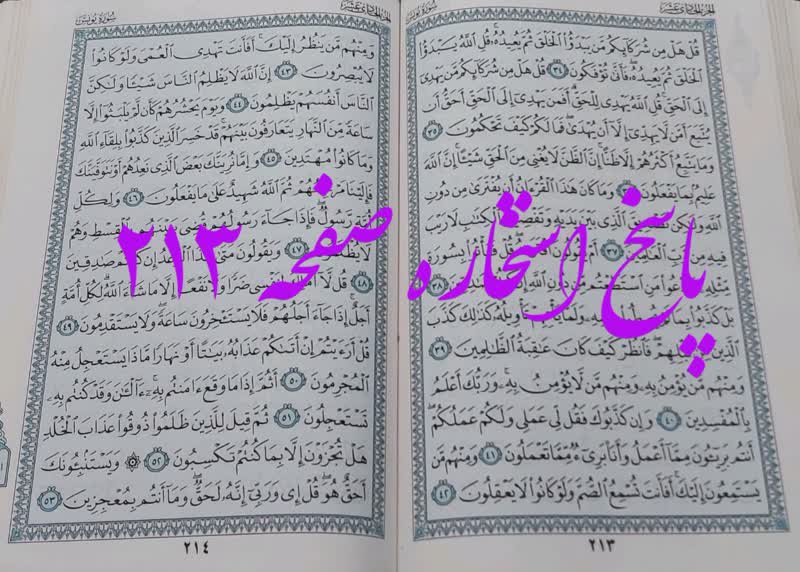 الجزء الحادي عشر سورة يونس
قُلْ هَلْ مِن شُرَكَآئِكُم مَّن يَبْدَؤُا۟ ٱلْخَلْقَ ثُمَّ يُعِيدُهُۥ ۚ قُلِ ٱللَّهُ يَبْدَؤُا۟
ٱلْخَلْقَ ثُمَّ يُعِيدُهُۥ ۖ فَأَنَّىٰ تُؤْفَكُونَ ٣٤ قُلْ هَلْ مِن شُرَكَآئِكُم مَّن يَهْدِىٓ
إِلَى ٱلْحَقِّ ۚ قُلِ ٱللَّهُ يَهْدِى لِلْحَقِّ ۗ أَفَمَن يَهْدِىٓ إِلَى ٱلْحَقِّ أَحَقُّ أَن
يُتَّبَعَ أَمَّن لَّا يَهِدِّىٓ إِلَّآ أَن يُهْدَىٰ ۖ فَمَا لَكُمْ كَيْفَ تَحْكُمُونَ ٣٥
وَمَا يَتَّبِعُ أَكْثَرُهُمْ إِلَّا ظَنًّا ۚ إِنَّ ٱلظَّنَّ لَا يُغْنِى مِنَ ٱلْحَقِّ شَيْـًٔا ۚ إِنَّ ٱللَّهَ
عَلِيمٌۢ بِمَا يَفْعَلُونَ وَمَا كَانَ هَـٰذَا ٱلْقُرْءَانُ أَن يُفْتَرَىٰ مِن دُونِ
ٱللَّهِ وَلَـٰكِن تَصْدِيقَ ٱلَّذِى بَيْنَ يَدَيْهِ وَتَفْصِيلَ ٱلْكِتَـٰبِ لَا رَيْبَ
فِيهِ مِن رَّبِّ ٱلْعَـٰلَمِينَ ٣٧ أَمْ يَقُولُونَ قُلْ فَأْتُوا۟ بِسُورَةٍ
مِّثْلِهِۦ وَٱدْعُوا۟ مَنِ ٱسْتَطَعْتُم مِّن دُونِ ٱللَّهِ إِن ٣٨
بَلْ كَذَّبُوا۟ بِمَا لَمْ وَلَمَّا يَأْتِهِمْ تَأْوِيلُهُۥ ۚ كَذَٰلِكَ كَذَّبَ
ٱلَّذِينَ مِن قَبْلِهِمْ ۖ فَٱنظُرْ كَيْفَ كَانَ عَـٰقِبَةُ ٱلظَّـٰلِمِينَ ٣٩
وَمِنْهُم مَّن يُؤْمِنُ بِهِۦ وَمِنْهُم مَّن لَّا يُؤْمِنُ بِهِۦ ۚ وَرَبُّكَ أَعْلَمُ
بِٱلْمُفْسِدِينَ ٤٠ وَإِن كَذَّبُوكَ فَقُل لِّى عَمَلِى وَلَكُمْ عَمَلُكُمْ ۖ
أَنتُم بَرِيٓـُٔونَ مِمَّآ أَعْمَلُ وَأَنَا۠ بَرِىٓءٌ مِّمَّا تَعْمَلُونَ ٤١ وَمِنْهُم مَّن
يَسْتَمِعُونَ إِلَيْكَ ۚ أَفَأَنتَ تُسْمِعُ ٱلصُّمَّ وَلَوْ كَانُوا۟ لَا يَعْقِلُونَ ٤٢
٢١٣
الجزء الحادي عشر سورة يونس
وَمِنْهُم مَّن يَنظُرُ إِلَيْكَ ۚ أَفَأَنتَ تَهْدِى ٱلْعُمْىَ وَلَوْ كَانُوا۟
لَا يُبْصِرُونَ ٤٣ إِنَّ ٱللَّهَ لَا يَظْلِمُ ٱلنَّاسَ شَيْـًٔا وَلَـٰكِنَّ
ٱلنَّاسَ أَنفُسَهُمْ يَظْلِمُونَ ٤٤ وَيَوْمَ يَحْشُرُهُمْ كَأَن لَّمْ يَلْبَثُوٓا۟ إِلَّا
سَاعَةً مِّنَ ٱلنَّهَارِ يَتَعَارَفُونَ بَيْنَهُمْ ۚ قَدْ خَسِرَ ٱلَّذِينَ كَذَّبُوا۟ بِلِقَآءِ ٱللَّهِ
وَمَا كَانُوا۟ مُهْتَدِينَ ٤٥ وَإِمَّا نُرِيَنَّكَ بَعْضَ ٱلَّذِى نَعِدُهُمْ أَوْ نَتَوَفَّيَنَّكَ
فَإِلَيْنَا مَرْجِعُهُمْ ثُمَّ ٱللَّهُ شَهِيدٌ عَلَىٰ مَا يَفْعَلُونَ ٤٦ وَلِكُلِّ
أُمَّةٍ رَّسُولٌ ۖ فَإِذَا جَآءَ رَسُولُهُمْ قُضِىَ بَيْنَهُم بِٱلْقِسْطِ وَهُمْ
لَا يُظْلَمُونَ ٤٧ وَيَقُولُونَ مَتَىٰ هَـٰذَا ٱلْوَعْدُ إِن كُنتُمْ صَـٰدِقِينَ
٤٨ قُل لَّآ أَمْلِكُ لِنَفْسِى ضَرًّا وَلَا نَفْعًا إِلَّا مَا شَآءَ ٱللَّهُ ۗ لِكُلِّ أُمَّةٍ
أَجَلٌ ۚ إِذَا جَآءَ أَجَلُهُمْ فَلَا يَسْتَـْٔخِرُونَ سَاعَةً ۖ وَلَا يَسْتَقْدِمُونَ ٤٩
قُلْ أَرَءَيْتُمْ إِنْ أَتَىٰكُمْ عَذَابُهُۥ بَيَـٰتًا أَوْ نَهَارًا مَّاذَا يَسْتَعْجِلُ مِنْهُ
ٱلْمُجْرِمُونَ ٥٠ أَثُمَّ إِذَا مَا وَقَعَ ءَامَنتُم بِهِۦٓ ۚ ءَآلْـَٔـٰنَ وَقَدْ كُنتُم بِهِۦ
تَسْتَعْجِلُونَ ٥١ ثُمَّ قِيلَ لِلَّذِينَ ظَلَمُوا۟ ذُوقُوا۟ عَذَابَ ٱلْخُلْدِ
هَلْ تُجْزَوْنَ إِلَّا بِمَا كُنتُمْ تَكْسِبُونَ ٥٢ ۞ وَيَسْتَنۢبِـُٔونَكَ
أَحَقٌّ هُوَ ۖ قُلْ إِى وَرَبِّىٓ إِنَّهُۥ لَحَقٌّ ۖ وَمَآ أَنتُم بِمُعْجِزِينَ ٥٣
٢١٤
پاسخ استخاره صفحه ۲۱۳